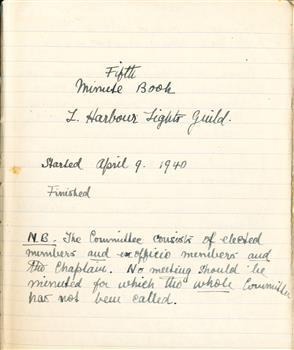 Fifth
Minute Book
L. Harbour Lights Guild.
Started April 9. 1940
Finished
N.B. The Committee consists of elected
members and exofficio members and
the Chaplain. No meeting should be
minuted for which the whole Committee
has not been called.